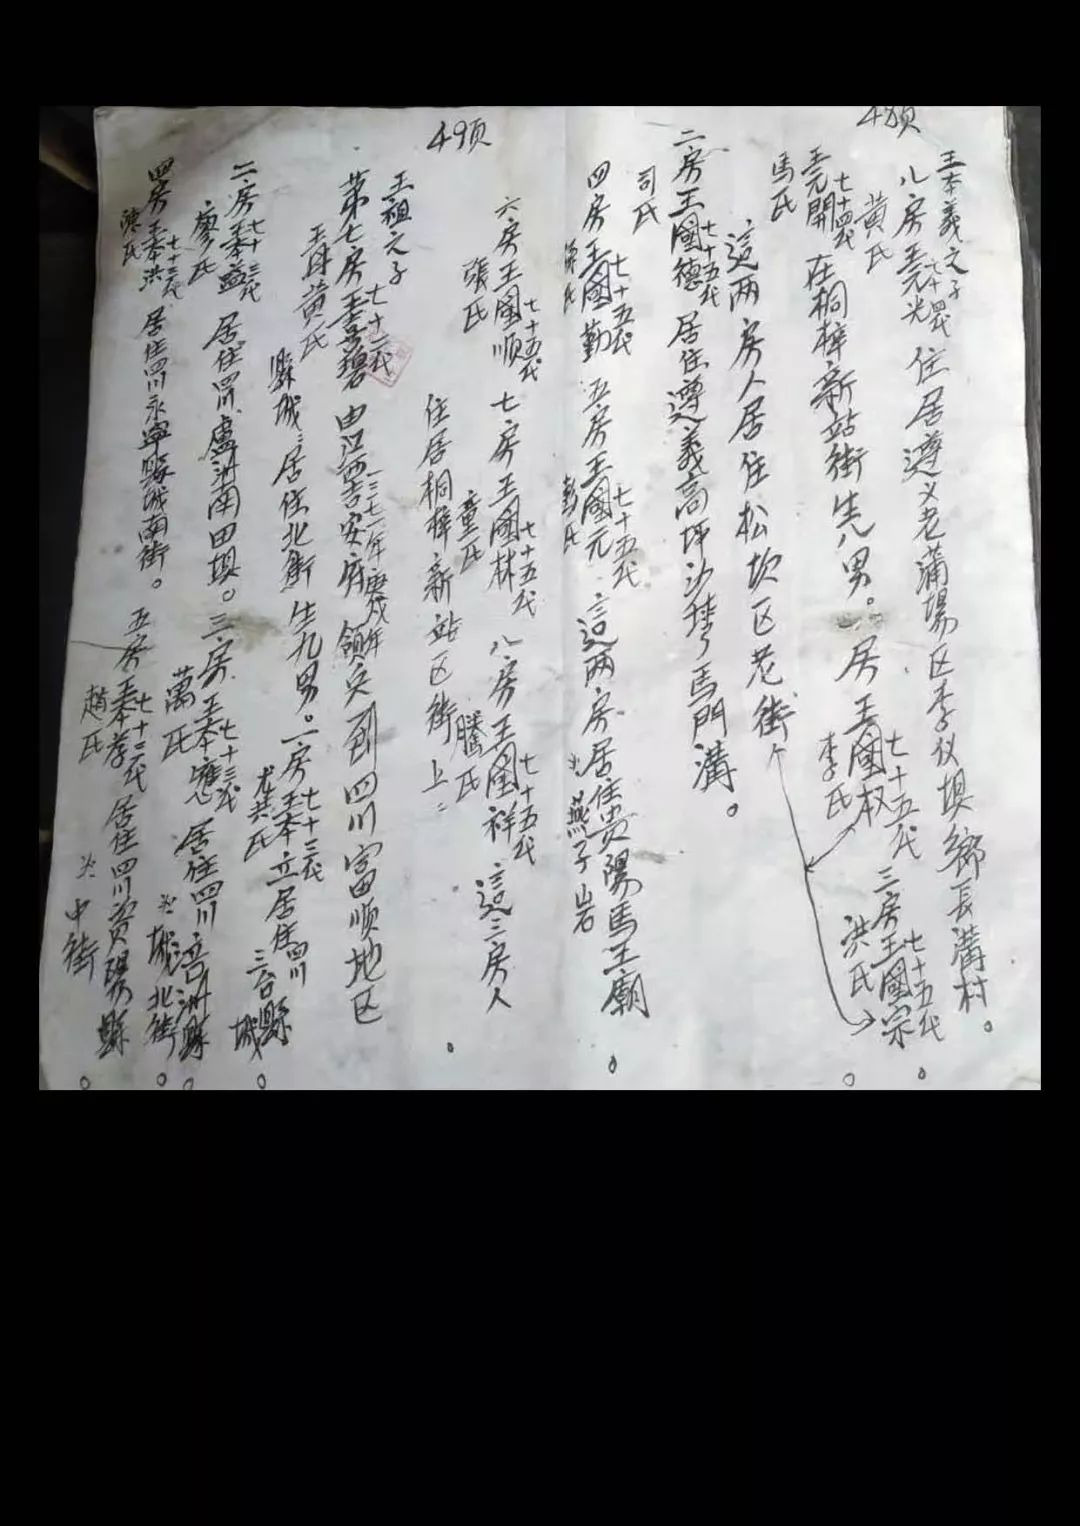 48页
王本義之子
八房王元光 七十四代 住居遵义老蒲場区李仪坝鄉長溝村。
黄氏
王元開 七十四代 在桐梓新站街生八男。房王國权 七十五代 三房王國宗 七十五代
馬氏 李氏 洪氏
這两房人居住松坎区老街
二房王國德 七十五代 居住遵義高坪沙 馬門溝。
司氏
四房王國勤 七十五代 五房王國元 七十五代 這两房居住贵陽馬王廟
氏 彭氏 燕子岩
49页
六房王國順 七十五代 七房王國林 七十五代 八房王國祥 七十五代 這三房人
張氏 童氏 騰氏
住居桐梓新站区街上
王祖之子
第七房王 碧 七十二代 由江西吉安府 一三七一年庚戌年 領兵到四川富顺地区
黄氏
縣城 居住北街生九男。一房王本立 七十三代 居住四川三台縣城
尤洪氏
二房王本 七十三代 居住四川盧洲南田坝。三房王本應 七十三代 居住四川涪洲縣城北街
廖氏 萬氏
四房王本洪 七十三代 居住四川永寧縣城南街。五房王本孝 七十三代 居住四川資陽縣中街
陳氏 趙氏